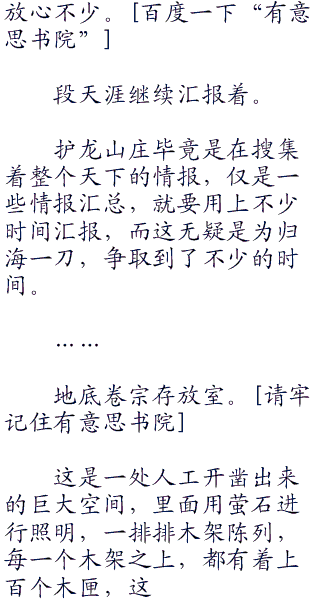 放心不少。[百度一下“有意
思书院”]
段天涯继续汇报着。
护龙山庄毕竟是在搜集
着整个天下的情报，仅是一
些情报汇总，就要用上不少
时间汇报，而这无疑是为归
海一刀，争取到了不少的时
间。
……
地底卷宗存放室。[请牢
记住有意思书院]
这是一处人工开凿出来
的巨大空间，里面用萤石进
行照明，一排排木架陈列，
每一个木架之上，都有着上
百个木匣，这